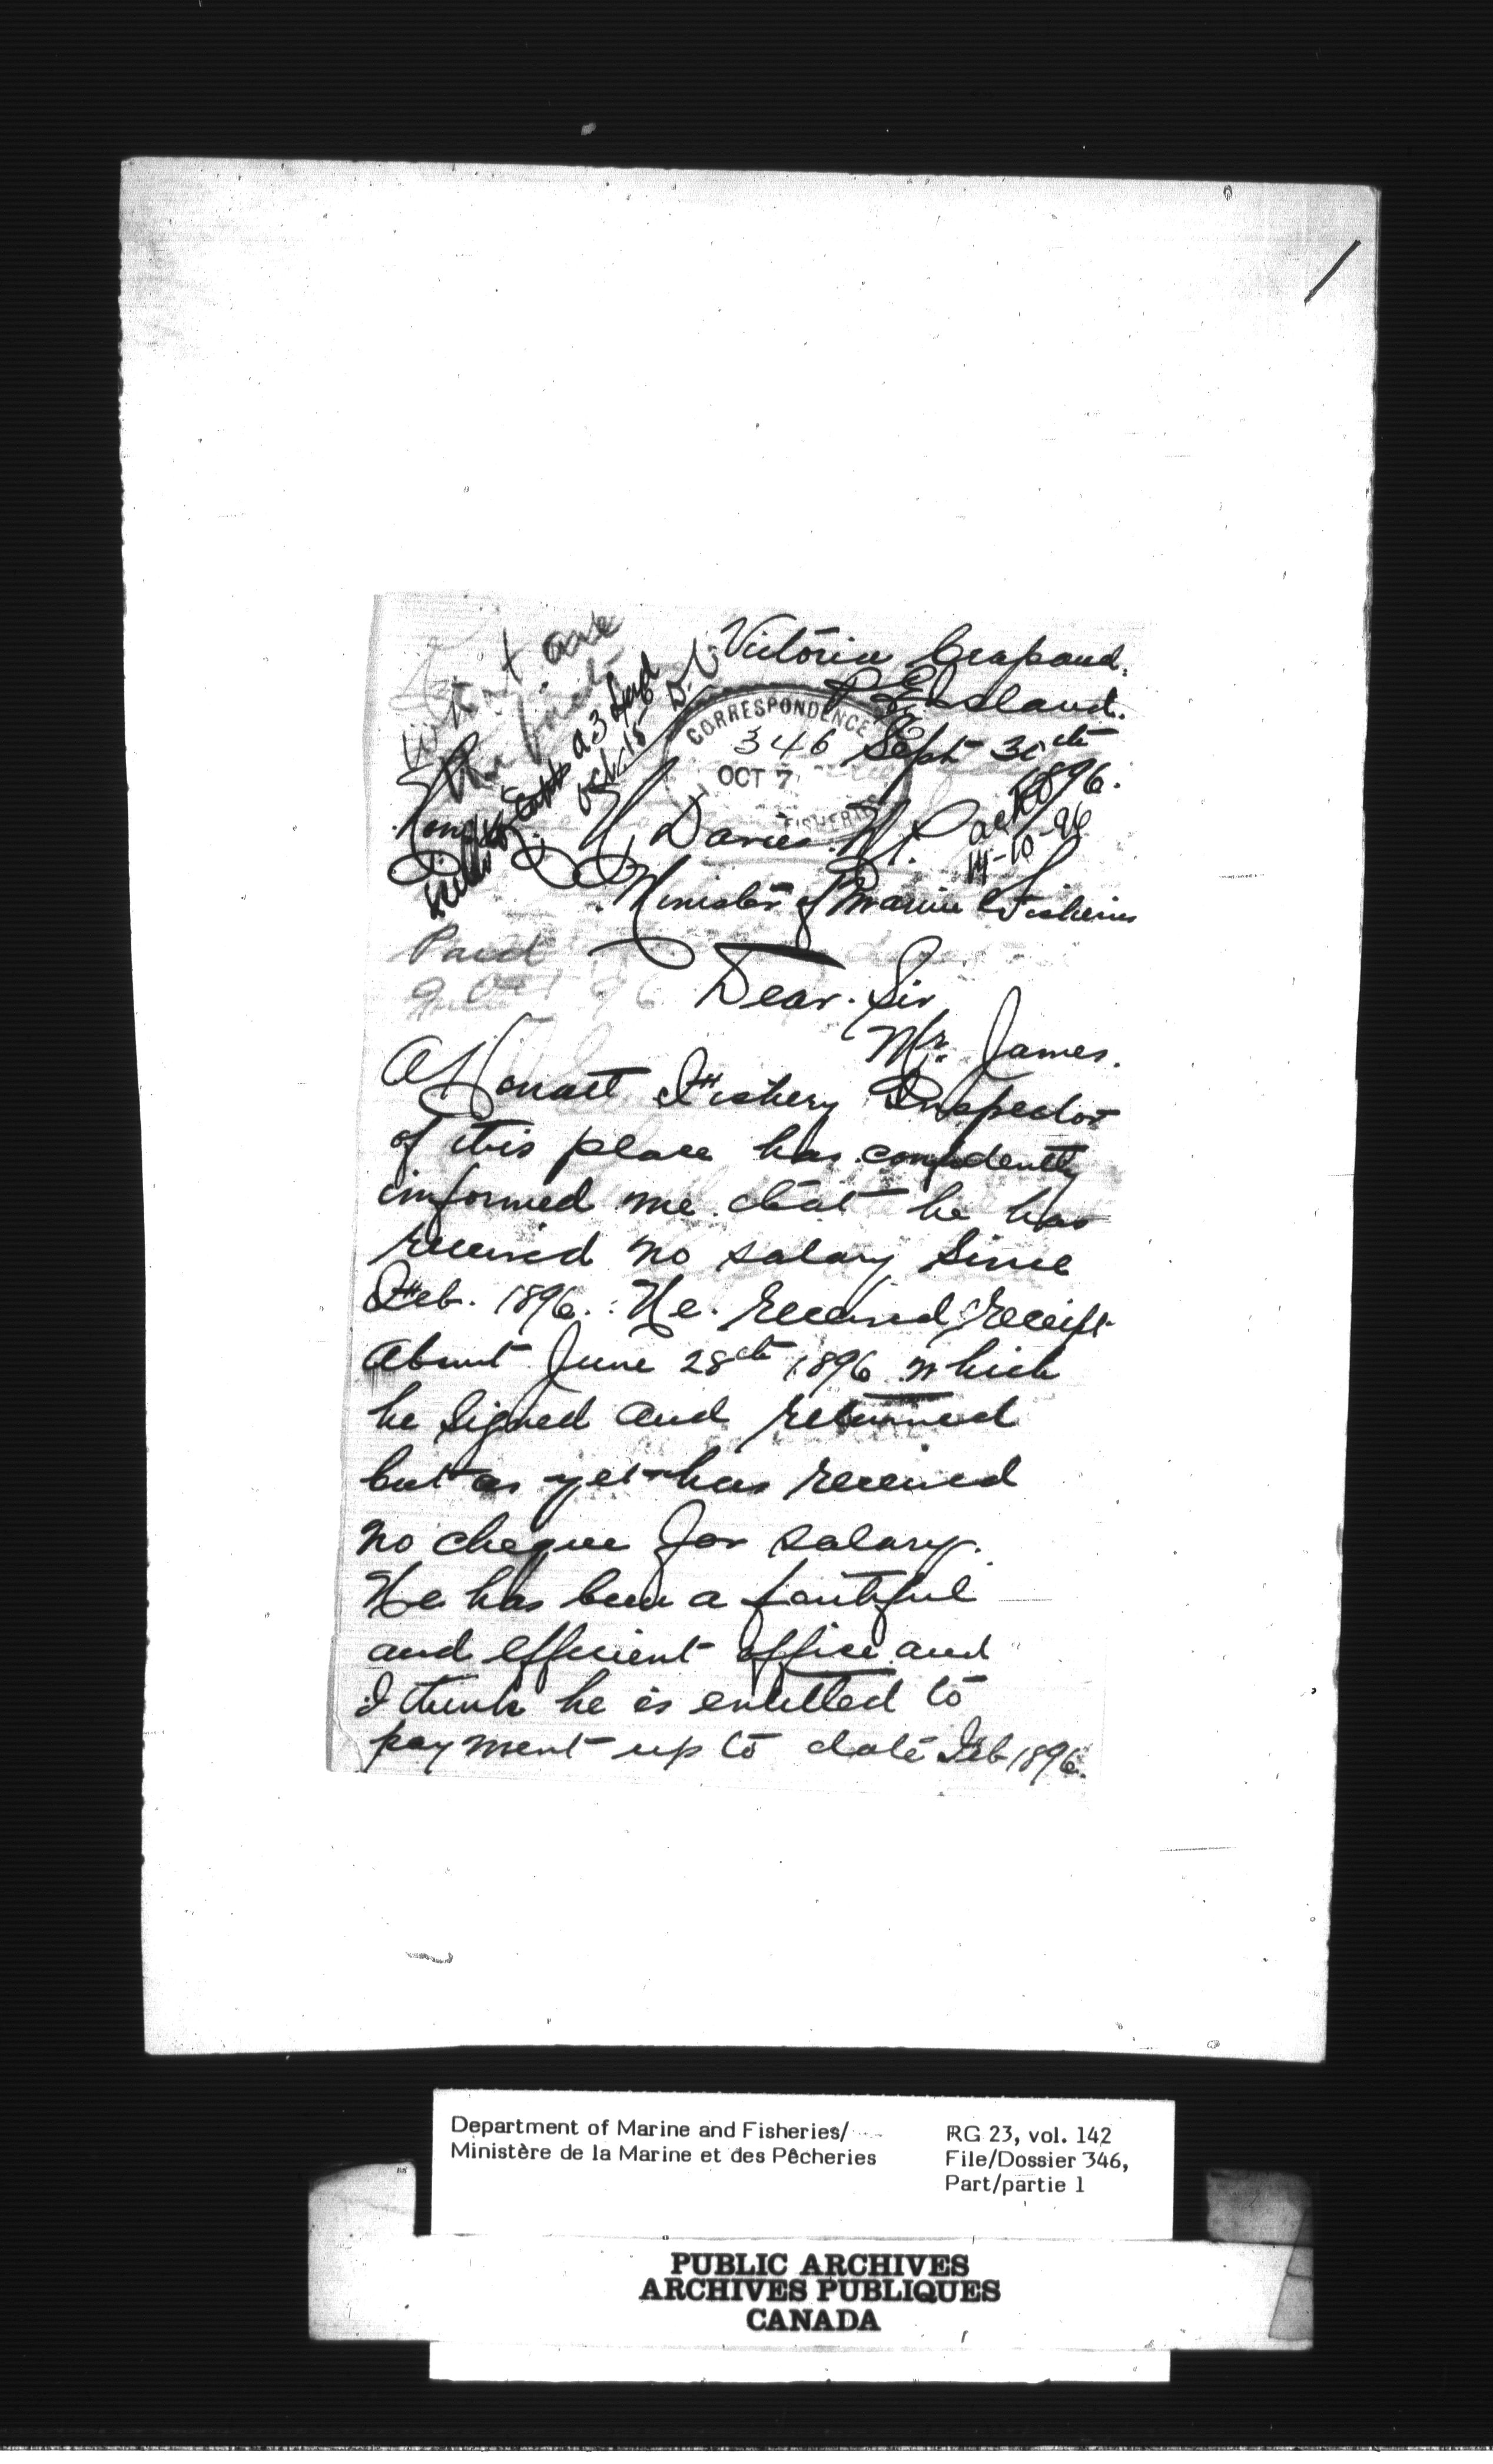 /
Victoria Crapaud.
P E Island.
Sept 30th
1896.
What are
the facts
a 3 Sept
Oct 15 96
CORRESPONDENCE
346
OCT 7
FISHERIES
Hon
L. H. Davies. M. P.
ack
14-10-96
Minister of Marine & Fisheries
Paid
Oct 96
Dear Sir
Mr. James.
A Howatt Fishery Inspector
of this place has confidently
informed me that he has
received no salary Since
Feb. 1896. He received receipt
About June 28th 1896 which
he Signed and returned
but as yet has received
no cheque for salary.
He has been a faithful
and efficient office and
I think he is entitled to
payment up to date Feb 1896.
Department of Marine and Fisheries/
Ministère de la Marine et des Pêcheries
RG 23, vol. 142
File/Dossier 346,
Part/partie 1
PUBLIC ARCHIVES
ARCHIVES PUBLIQUES
CANADA